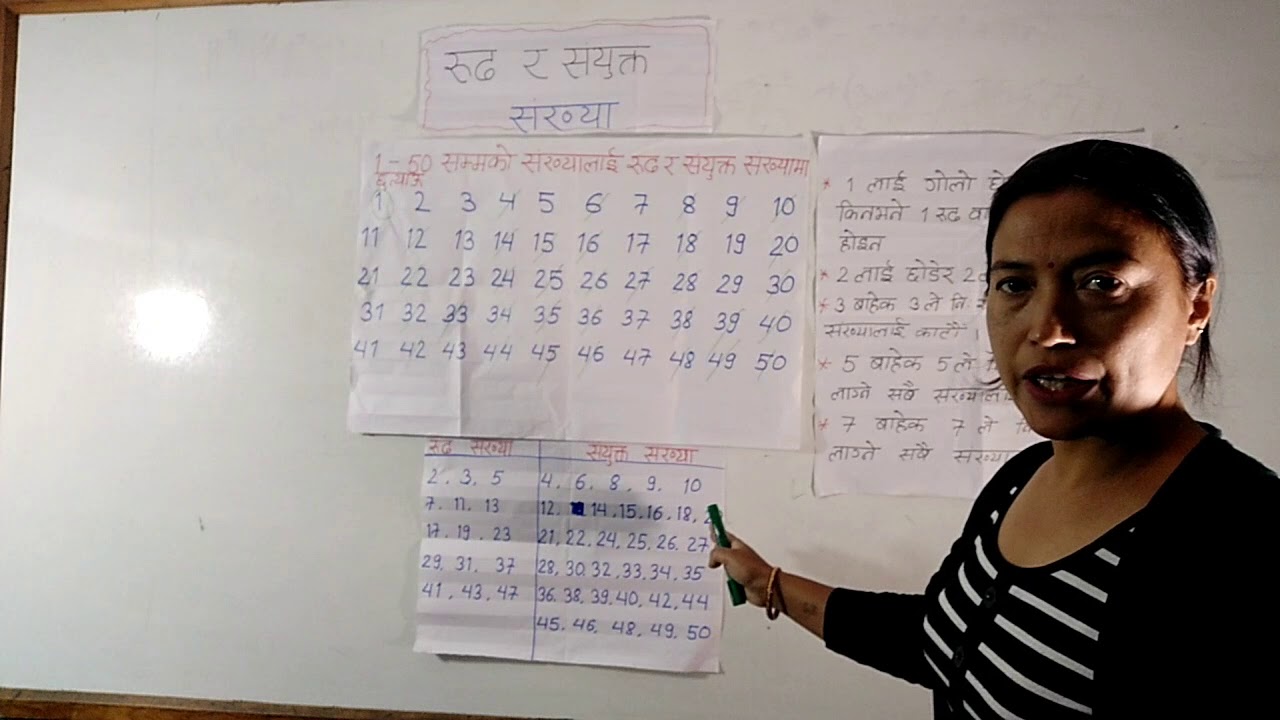 रुढ र संयुक्त
संख्या
1 - 50 सम्मको संख्यालाई रुढ र संयुक्त संख्यामा
छुत्याऊ
1 2 3 4 5 6 7 8 9 10
11 12 13 14 15 16 17 18 19 20
21 22 23 24 25 26 27 28 29 30
31 32 33 34 35 36 37 38 39 40
41 42 43 44 45 46 47 48 49 50
रुढ संख्या
2. 3. 5
7. 11. 13
17. 19. 23
29. 31. 37
41. 43. 47
संयुक्त संख्या
4. 6. 8. 9. 10
12. 14. 15. 16. 18.
21. 22. 24. 25. 26. 27
28. 30. 32. 33. 34. 35
36. 38. 39. 40. 42. 44
45. 46. 48. 49. 50
* 1 लाई गोलो
कितभते 1 रुढ
होइन
* 2 लाई छोडेर 2
* 3 बाहेक 3 ले नि.
संख्यालाई काटौं ।
* 5 बाहेक 5 ले
लाग्ने सबै
* 7 बाहेक 7 ले
लाग्ने सबै संख्या